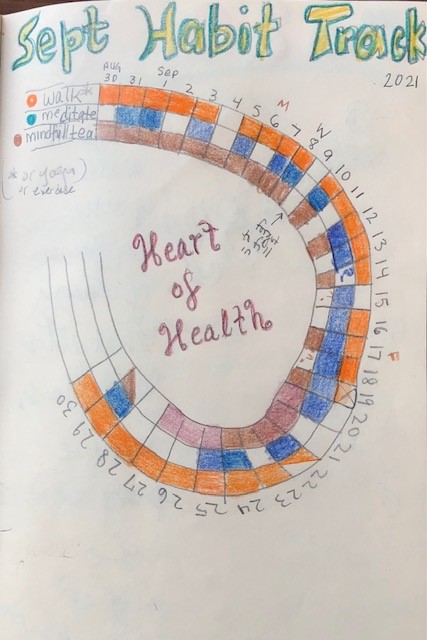 Sept Habit Track
2021
AUG
30
31
SEP
1
2
3
4
5
6
M
7
8
W
9
10
11
12
13
14
15
16
17
F
18
19
20
21
22
23
24
25
26
27
28
29
30
walk*
meditate
mindful tea
* or yoga
or exercise
forgot
to fill
in
?
Heart
of
Health